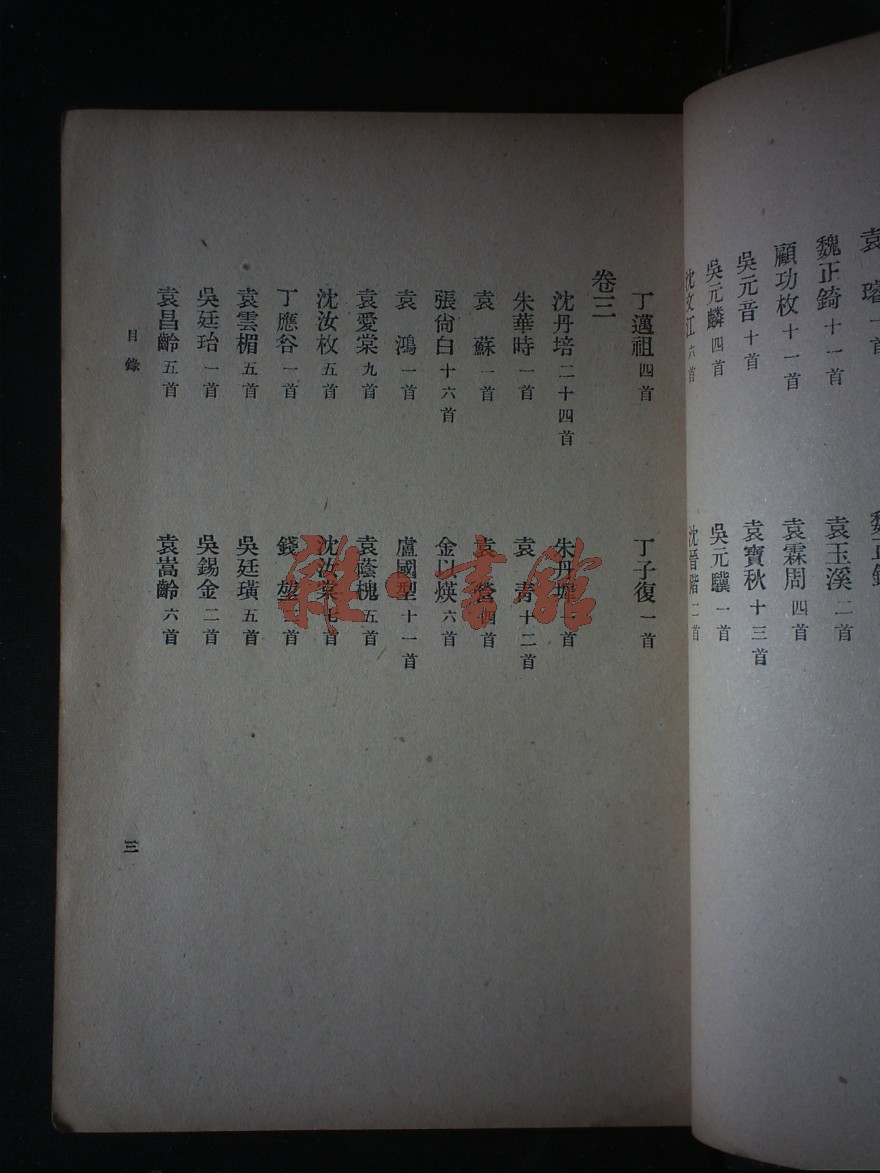 袁璿一首
魏正錡十一首
袁玉溪二首
顧功枚十一首
袁霖周四首
吳元音十首
袁寶秋十三首
吳元麟四首
吳元驥一首
沈文江六首
沈晉階二首
丁邁祖四首
丁子復一首
卷三
沈丹培二十四首
朱丹墀一首
朱華時一首
袁青十二首
袁蘇一首
張尙白十六首
金以煐六首
袁鴻一首
盧國型十一首
袁愛棠九首
袁蔭槐五首
沈汝枚五首
沈汝棠七首
丁應谷一首
袁雲楣五首
吳廷璜五首
吳廷珆一首
吳錫金二首
袁昌齡五首
袁嵩齡六首
目錄
三
雜·書館